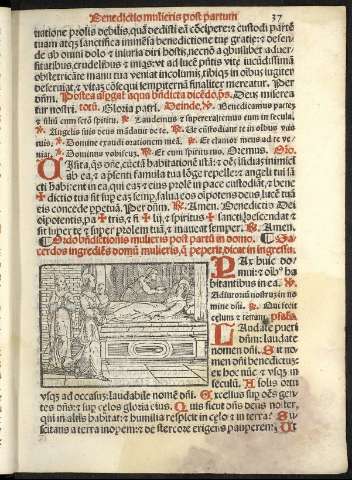 Benedictio mulieris post partum 37
tuatione prolis debilis, quā dedisti eā cōcipere: et custodi partū
tuum atq3 sanctifica immēsa benedictione tue gratie: et defen-
de ab omni dolo et iniuria diri hostis, necnō a quilibet aduer-
sitatibus
obstetricāte manu tua veniat incolumis, tibiq3 in oībus iugiter
deseruiat, et vitā cōsequi sempiternā finaliter mereatur. Per
dn̄m. Postea aspergat aqua bn̄dicta dicēdo ps. Deus misereat
tur nostri. totū. Gloria patri. Deinde. ℣. Benedicamus patrem
et filiū cum sctō spiritu. ℟. Laudemus et superexaltemus eum in secula.
℣. Angelis suis deus mādauit de te. ℟. Ut custodiant te in oībus viis
tuis. ℣. Domine exaudi orationem meā. ℟. Et clamor meus ad te ve-
niat. ℣. Dominus vobiscum. ℟. Et cum spiritu tuo. Oremus. Orō.
Visita, qs one, cūctā habitationē istā: et oēs īsidias inimici
ab ea, et a presenti famula tua lōge repelle: et angeli tui sā
cti habitent in ea, qui eaʒ et eius prolē in pace custodiāt, et bene
✠ dictio tua sit sup eas semp, salua eos oīpotens deus lucē tuā
eis concede ꝑpetuā. Per dn̄m. ℟. Amen. Benedictio Dei
oīpotentis, pa ✠ tris, et fi ✠ lij, et spiritus ✠ sancti: descendat et
sit super te et super prolem tuā, et maneat semper. ℟. Amen.
¶ Ordo bn̄dictionis mulieris post partū in domo. ¶ Sa-
cerdos ingrediēs domū mulieris, q̄ peperit, dicat in ingressu.
PAx huic do-
mui: et oībꝰ ha
bitantibus in ea. ℣.
Adiutoriū nostrum in no
mine dn̄i. ℟. Qui fecit
celum et terram. psalmꝰ.
LAudate pueri
dn̄m: laudate
nomen dn̄i. Sit no-
men dn̄i benedictuʒ:
ex hoc nūc et vsqʒ in
seculū. A solis ortu
vsqʒ ad occasuʒ: laudabile nomē dn̄i. Excelsus sup oēs gen-
tes dn̄s: et sup celos gloria eius. Quis sicut dn̄s deus noster,
qui in altis habitat: et humilia respicit in celo et in terra? Su
scitans a terra inopem: et de stercore erigens pauperem: